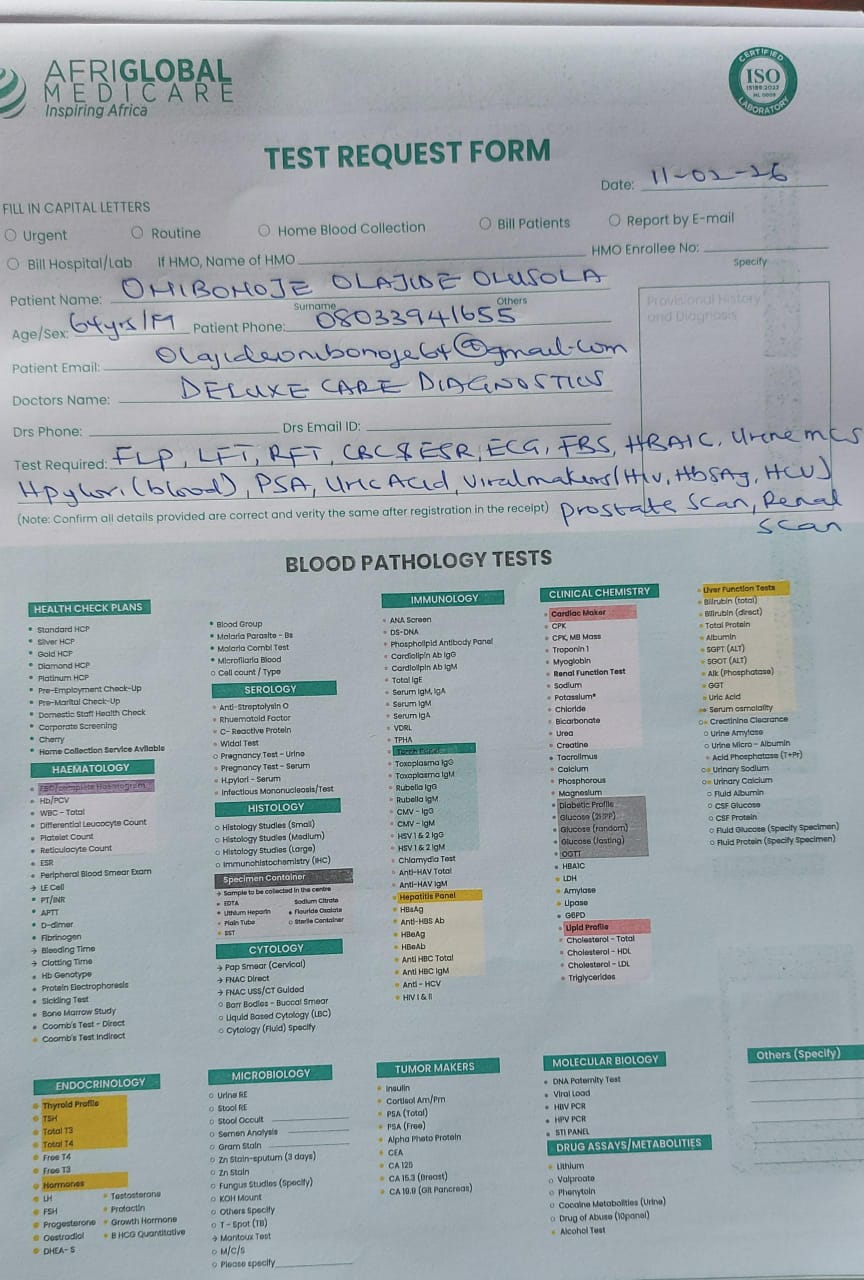 AFRIGLOBAL
MEDICARE
Inspiring Africa
CERTIFIED
ISO
15189:2022
LABORATORY
TEST REQUEST FORM
Date: 11-02-26
FILL IN CAPITAL LETTERS
Urgent Routine Home Blood Collection Bill Patients Report by E-mail
Bill Hospital/Lab If HMO, Name of HMO HMO Enrollee No:
Specify
Patient Name: OMIBOMOJE OLAJIDE OLUSOLA
Surname Others
Provisional History
and Diagnosis
Age/Sex: 64yrs/M Patient Phone: 08033941655
Patient Email: Olajideomibomoje64@gmail.com
Doctors Name: DELUXE CARE DIAGNOSTICS
Drs Phone: Drs Email ID:
Test Required: FLP, LFT, RFT, CBC & ESR, ECG, FBS, HBA1C, Urine mcs
Hpylori (blood), PSA, Uric Acid, Viral makers (HIV, HbSAg, HCV)
(Note: Confirm all details provided are correct and verity the same after registration in the receipt) prostate scan, Renal
scan
BLOOD PATHOLOGY TESTS
HEALTH CHECK PLANS
Standard HCP
Silver HCP
Gold HCP
Diamond HCP
Platinum HCP
Pre-Employment Check-Up
Pre-Marital Check-Up
Domestic Staff Health Check
Corporate Screening
Cherry
Home Collection Service Avilable
HAEMATOLOGY
FBC/complete Haemogram
Hb/PCV
WBC - Total
Differential Leucocyte Count
Platelet Count
Reticulocyte Count
ESR
Peripheral Blood Smear Exam
LE Cell
PT/INR
APTT
D-dimer
Fibrinogen
Bleeding Time
Clotting Time
Hb Genotype
Protein Electrophoresis
Sickling Test
Bone Marrow Study
Coomb's Test - Direct
Coomb's Test Indirect
Blood Group
Malaria Parasite - Bs
Malaria Combi Test
Microfilaria Blood
Cell count / Type
SEROLOGY
Anti-Streptolysin O
Rhuematoid Factor
C- Reactive Protein
Widal Test
Pregnancy Test - Urine
Pregnancy Test - Serum
H.pylori - Serum
Infectious Mononucleosis/Test
HISTOLOGY
Histology Studies (Small)
Histology Studies (Medium)
Histology Studies (Large)
Immunohistochemistry (IHC)
Specimen Container
Sample to be collected in the centre
EDTA Sodium Citrate
Lithium Heparin Flouride Oxalate
Plain Tube Sterile Container
SST
CYTOLOGY
Pap Smear (Cervical)
FNAC Direct
FNAC USS/CT Guided
Barr Bodies - Buccal Smear
Liquid Based Cytology (LBC)
Cytology (Fluid) Specify
IMMUNOLOGY
ANA Screen
DS-DNA
Phospholipid Antibody Panel
Cardiolipin Ab IgG
Cardiolipin Ab IgM
Total IgE
Serum IgM, IgA
Serum IgM
Serum IgA
VDRL
TPHA
Torch Panel
Toxoplasma IgG
Toxoplasma IgM
Rubella IgG
Rubella IgM
CMV - IgG
CMV - IgM
HSV 1 & 2 IgG
HSV 1 & 2 IgM
Chlamydia Test
Anti-HAV Total
Anti-HAV IgM
Hepatitis Panel
HBsAg
Anti-HBS Ab
HBeAg
HBeAb
Anti HBC Total
Anti HBC IgM
Anti - HCV
HIV I & II
CLINICAL CHEMISTRY
Cardiac Maker
CPK
CPK, MB Mass
Troponin 1
Myoglobin
Renal Function Test
Sodium
Potassium*
Chloride
Bicarbonate
Urea
Creatine
Tacrolimus
Calcium
Phosphorous
Magnesium
Diabetic Profile
Glucose (2HPP)
Glucose (random)
Glucose (fasting)
OGTT
HBA1C
LDH
Amylase
Lipase
G6PD
Lipid Profile
Cholesterol - Total
Cholesterol - HDL
Cholesterol - LDL
Triglycerides
Liver Function Tests
Bilirubin (total)
Bilirubin (direct)
Total Protein
Albumin
SGPT (ALT)
SGOT (ALT)
Alk (Phosphatase)
GGT
Uric Acid
Serum osmolality
Creatinine Clearance
Urine Amylase
Urine Micro - Albumin
Acid Phosphatase (T+Pr)
Urinary Sodium
Urinary Calcium
Fluid Albumin
CSF Glucose
CSF Protein
Fluid Glucose (Specify Specimen)
Fluid Protein (Specify Specimen)
ENDOCRINOLOGY
Thyroid Profile
TSH
Total T3
Total T4
Free T4
Free T3
Hormones
LH Testosterone
FSH Prolactin
Progesterone Growth Hormone
Oestradiol B HCG Quantitative
DHEA- S
MICROBIOLOGY
Urine RE
Stool RE
Stool Occult
Semen Analysis
Gram Stain
Zn Stain-sputum (3 days)
Zn Stain
Fungus Studies (Specify)
KOH Mount
Others Specify
T - Spot (TB)
Mantoux Test
M/C/S
Please specify
TUMOR MAKERS
Insulin
Cortisol Am/Pm
PSA (Total)
PSA (Free)
Alpha Photo Protein
CEA
CA 125
CA 15.3 (Breast)
CA 19.9 (Git Pancreas)
MOLECULAR BIOLOGY
DNA Paternity Test
Viral Load
HBV PCR
HPV PCR
STI PANEL
DRUG ASSAYS/METABOLITIES
Lithium
Valproate
Phenytoin
Cocaine Metabolities (Urine)
Drug of Abuse (10panel)
Alcohol Test
Others (Specify)